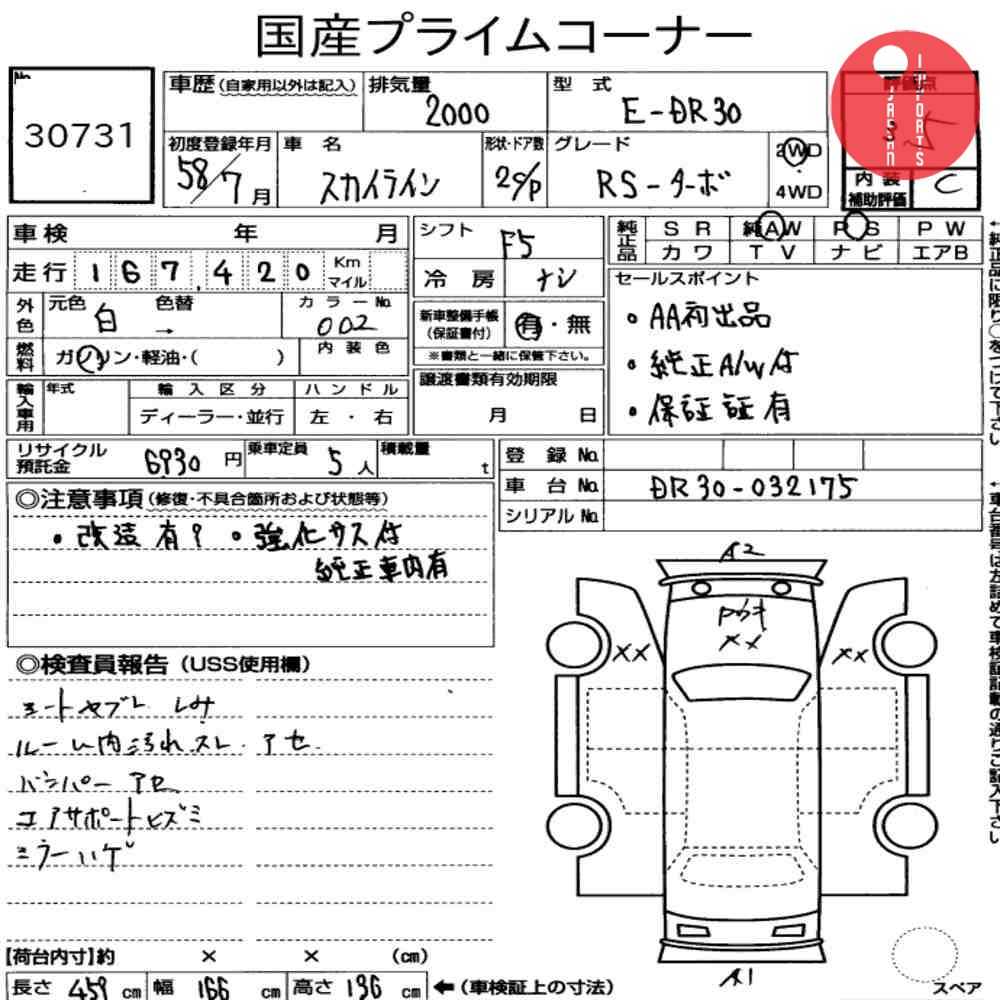 国産プライムコーナー
No
30731
車歴(自家用以外は記入)
排気量
2000
型 式
E-DR30
評価点
3.5
JAPAN
IMPORTS
初度登録年月
58/7月
車 名
スカイライン
形状・ドア数
2C/P
グレード
RS-ターボ
2WD
4WD
内装
補助評価
C
車検 年 月
走行 167,420 Km マイル
シフト
F5
冷 房
ナシ
純正品
SR 純AW PS PW
カワ TV ナビ エアB
外色
元色 白
色替 →
カラーNo
002
燃料
ガソリン・軽油・( )
内装色
新車整備手帳
(保証書付)
有・無
※書類と一緒に保管下さい。
セールスポイント
・AA初出品
・純正A/W付
・保証証有
輸入車用
年式
輸入区分
ディーラー・並行
ハンドル
左・右
譲渡書類有効期限
月 日
リサイクル
預託金
6930円
乗車定員
5人
積載量
t
登録No.
車台No.
DR30-032175
シリアルNo.
◎注意事項(修復・不具合箇所および状態等)
・改造有? ・強化サス付
純正車内有
◎検査員報告(USS使用欄)
シートヤブレ シミ
ルーム内汚れスレ・アセ
バンパーアセ
コアサポートヒズミ
ミラーハゲ
A2
XX
XX
XX
A1
スペア
【荷台内寸】約 × × (cm)
長さ 459 cm 幅 166 cm 高さ 136 cm ←(車検証上の寸法)
←純正品に限り○をつけて下さい
←車台番号は左詰めで車検証記載の通りご記入下さい